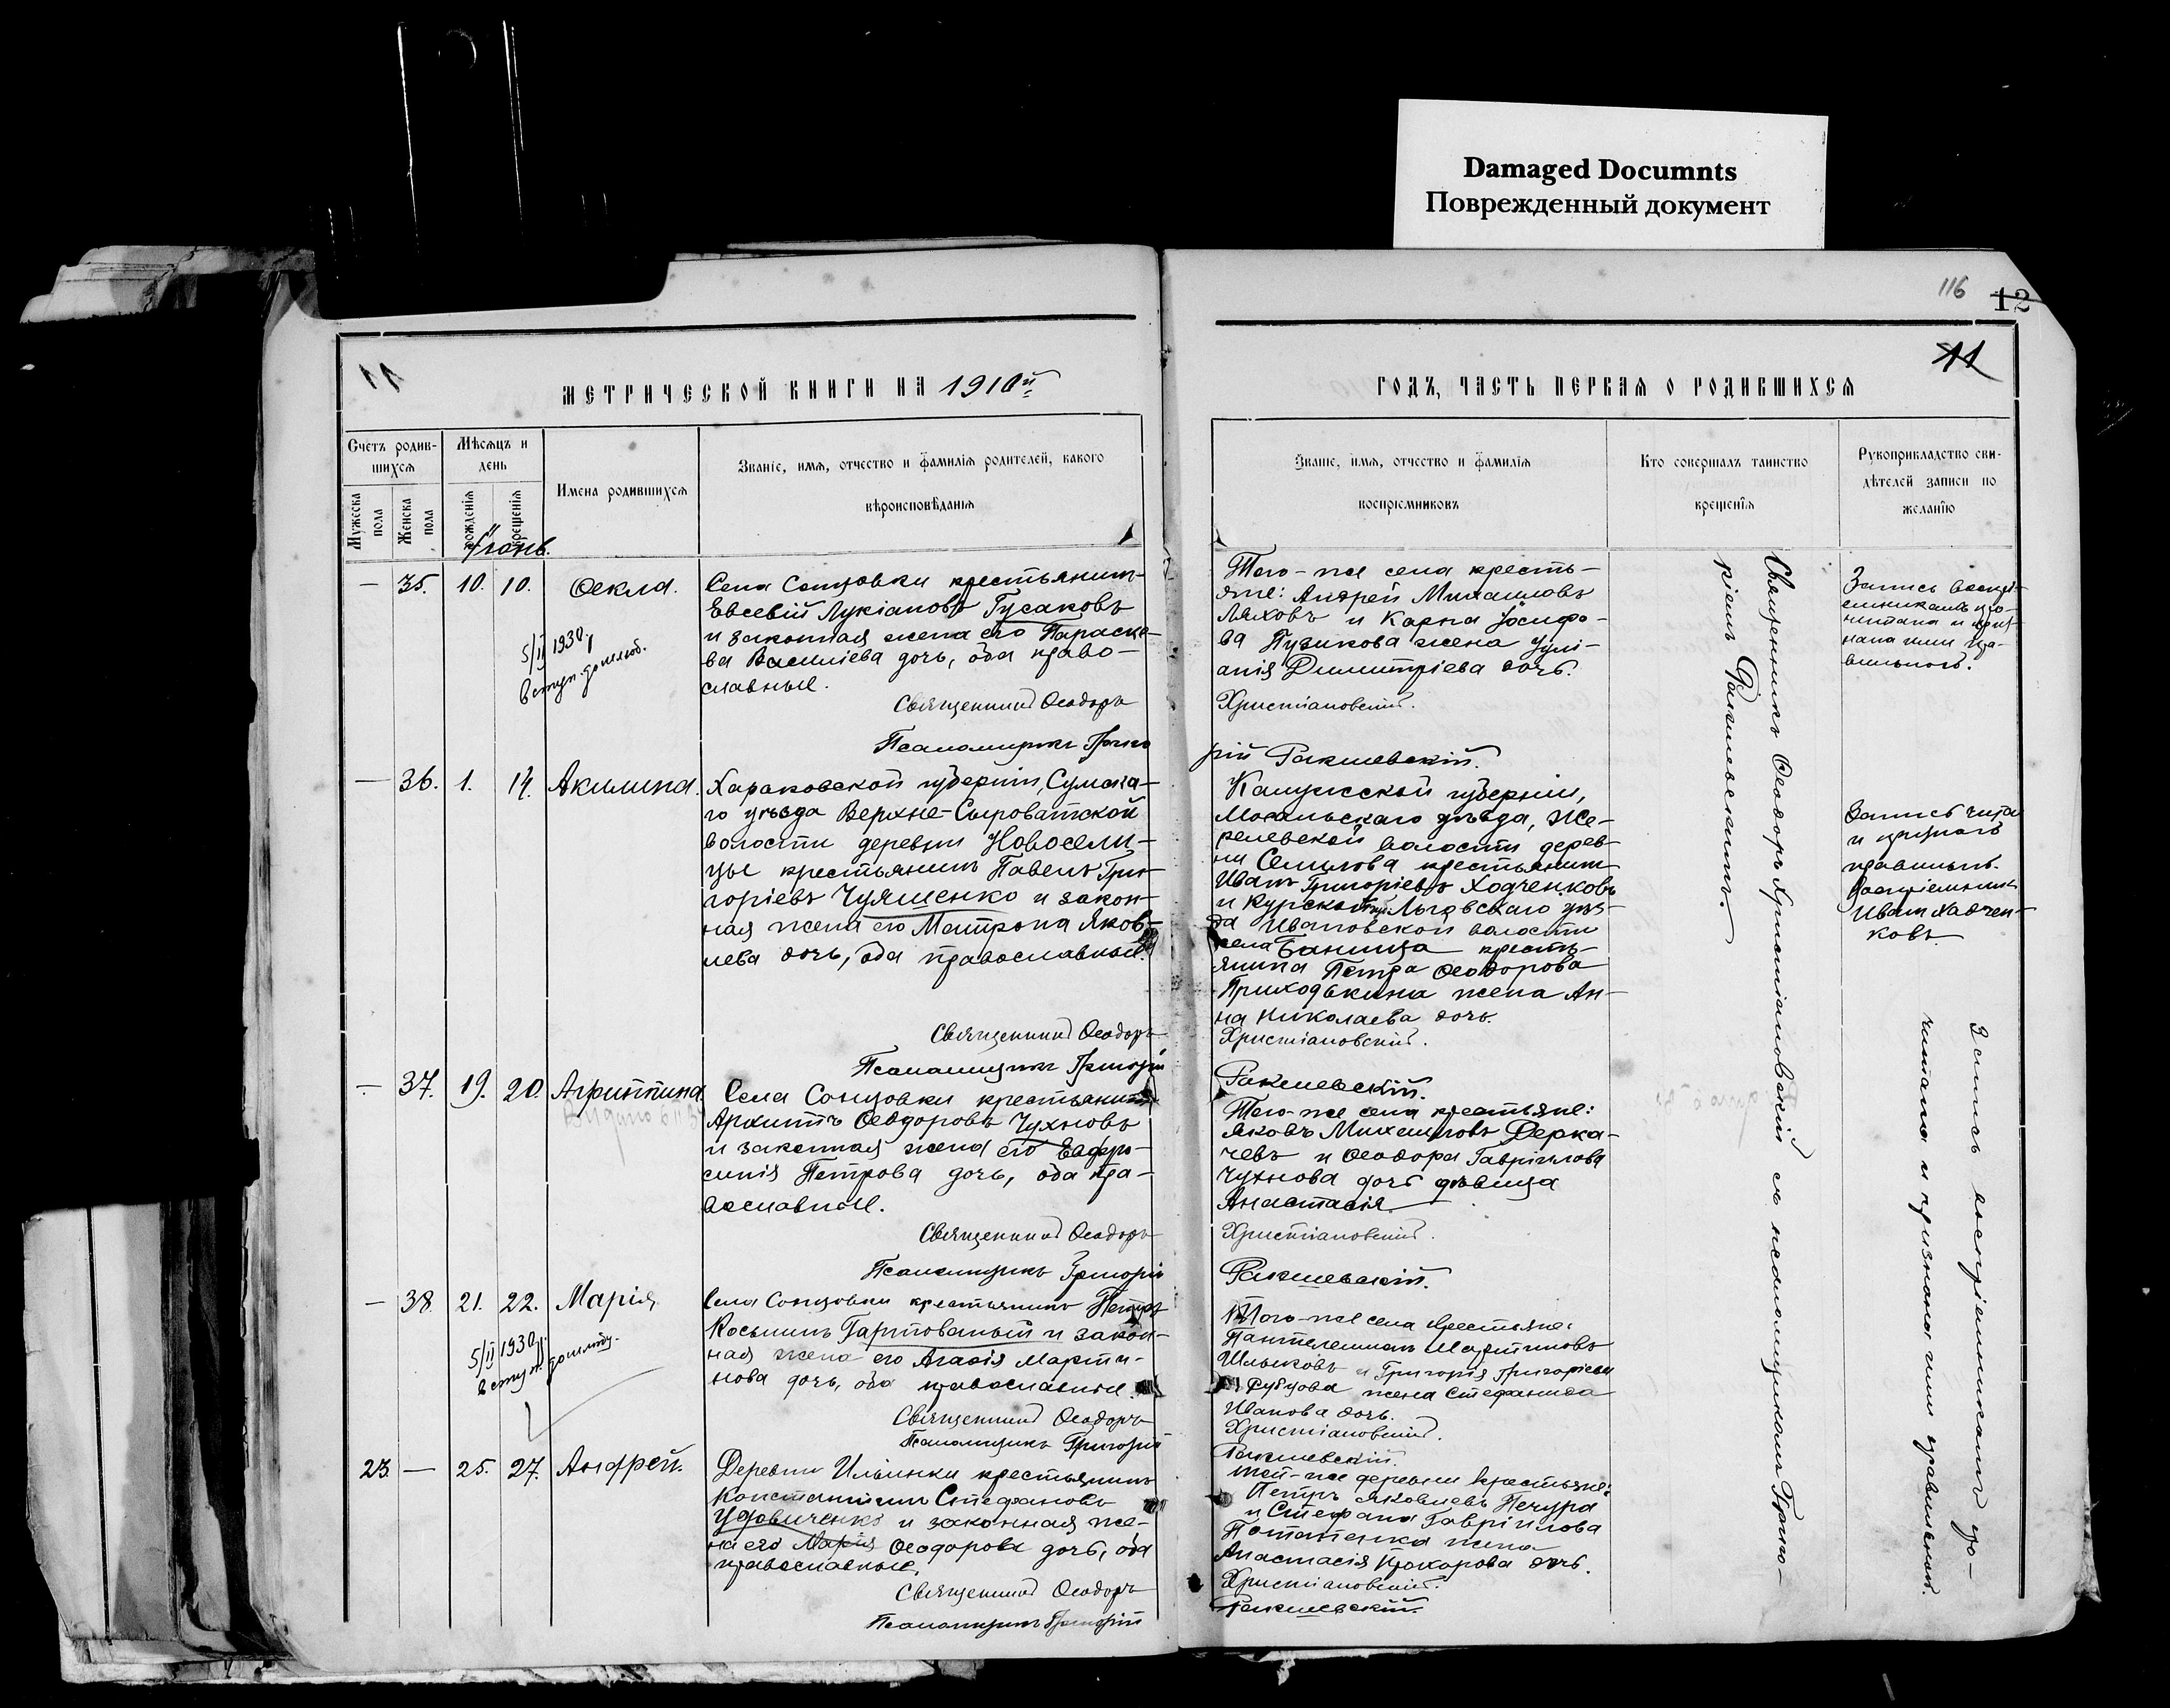 Damaged Documnts
Поврежденный документ
116
12
11
11
МЕТРИЧЕСКОЙ КНИГИ НА 1910й
ГОДЪ, ЧАСТЬ ПЕРВАЯ О РОДИВШИХСЯ
Счетъ родив-
шихся
Мужеска
пола
Женска
пола
Мѣсяцъ и
день
рожденія
крещенія
Имена родившихся
Званіе, имя, отчество и фамилія родителей, какого
вѣроисповѣданія
Званіе, имя, отчество и фамилія
воспріемниковъ
Кто совершалъ таинство
крещенія
Рукоприкладство сви-
дѣтелей записи по
желанію
— 35. 10. 10. Ѳекла.
5/II 1930
Села Сонцовки крестьянинъ
Евсевій Лукіановъ Гусаковъ
и законная жена его Параске-
ва Василіева дочь, оба право-
славные.
Священникъ Ѳеодоръ
Псаломщикъ Григо
Того-же села кресть-
яне: Андрей Михаиловъ
Ляховъ и Карпа Іосифо-
ва Пузикова жена Іулі-
анія Димитріева дочь.
Христіановскій.
рій Ракшевскій.
Священникъ Ѳеодоръ Христіановскій съ псаломщикомъ Григо-
ріемъ Ракшевскимъ.
Запись воспрі-
емникамъ про-
читана и приз-
нана ими пра-
вильною.
— 36. 1. 14. Акилина.
Харьковской губерніи, Сумска-
го уѣзда Верхне-Сыроватской
волости деревни Новосели-
цы крестьянинъ Павелъ Гри-
горіевъ Чуяшенко и закон-
ная жена его Матрона Яков-
лева дочь, оба православные.
Священникъ Ѳеодоръ
Псаломщикъ Григорій
Калужской губерніи,
Мосальскаго уѣзда, Же-
релевской волости дерев-
ни Семирова крестьянинъ
Иванъ Григоріевъ Ходченковъ
и Курской губ. Льговскаго уѣз-
да Ивановской волости
села Банища кресть-
янина Петра Ѳеодорова
Приходькина жена Ан-
на Николаева дочь.
Христіановскій.
Ракшевскій.
Запись читалъ
и призналъ
правильн.
Воспріемникъ
Иванъ Хадчен-
ковъ.
— 37. 19. 20. Агриппина.
Села Сонцовки крестьянинъ
Архиппъ Ѳеодоровъ Чухновъ
и законная жена его Евфро-
синія Петрова дочь, оба пра-
вославные.
Священникъ Ѳеодоръ
Псаломщикъ Григорій
Того-же села крестьяне:
Яковъ Михаиловъ Дерка-
чевъ и Ѳеодора Гавріилова
Чухнова дочь дѣвица
Анастасія
Христіановскій.
Ракшевскій.
Запись воспріемникамъ про-
читана и признана ими правильной.
— 38. 21. 22. Марія
5/II 1930
Села Сонцовки крестьянинъ Петръ
Косминъ Гартованый и закон-
ная жена его Агаѳія Марти-
нова дочь, оба православные
Священникъ Ѳеодоръ
Псаломщикъ Григорій
Того-же села крестьяне:
Пантелеимонъ Мартиновъ
Шльковъ и Григорія Григоріева
Рубцова жена Стефанида
Иванова дочь.
Христіановскій.
Ракшевскій.
23. — 25. 27. Андрей.
Деревни Ильинки крестьянинъ
Константинъ Стефановъ
Удовиченко и законная же-
на его Марія Ѳеодорова дочь, оба
православные.
Священникъ Ѳеодоръ
Псаломщикъ Григорій
той-же деревни крестьяне:
Петръ Яковлевъ Печура
и Стефана Гавріилова
Потапенка жена
Анастасія Прохорова дочь.
Христіановскій.
Ракшевскій.